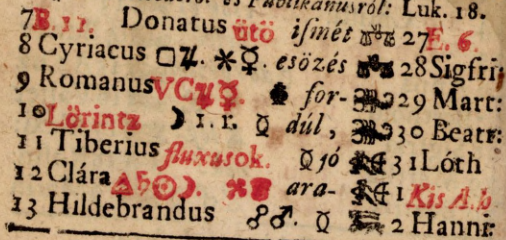 Publikánusról: Luk. 18.
7 B. 11. Donatus ütö iſmét 27 E. 6.
8 Cyriacus □♃. ⚹☿. esözés 28 Sigfri
9 Romanus VC♃☿. for- 29 Mart:
10 Lörintz ☽ 1. r. ☿ dúl, 30 Beatr:
11 Tiberius fluxusok. ☿ jó 31 Lóth
12 Clára △♄☉☽. ara- 1 Kis A.b
13 Hildebrandus ☍♂. ☿ 2 Hanni: